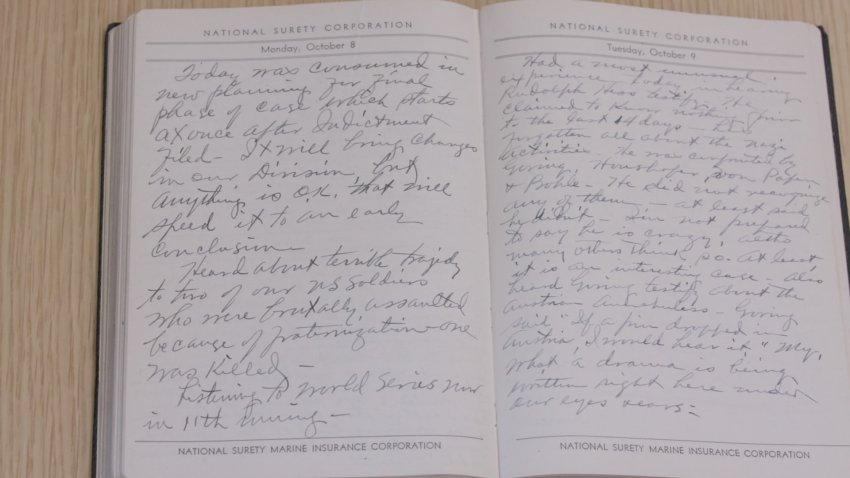 NATIONAL SURETY CORPORATION
Monday, October 8
Today was consumed in
new planning for final
phase of case which starts
at once after Indictment
filed - It will bring changes
in our Division, but
anything is O.K. that will
speed it to an early
conclusion -
Heard about terrible tragedy
to two of our US soldiers
who were brutally assaulted
because of fraternization - one
was killed -
Listening to World Series now
in 11th inning -
NATIONAL SURETY MARINE INSURANCE CORPORATION
NATIONAL SURETY CORPORATION
Tuesday, October 9
Had a most unusual
experience today in hearing
Rudolph Hess testify. He
claimed to know nothing prior
to the last 14 days - has
forgotten all about the nazi
activities. He was confronted by
Göring, Haushofer, von Papen
& Bohle - He did not recognize
any of them - at least said
he didn't - I'm not prepared
to say he is crazy, altho
many others think so. At least
it is an interesting case - Also
heard Göring testify about the
Austrian Anschluss - Göring
said "If a pin dropped in
Austria, I would hear it" My,
what a drama is being
written right here under
our eyes & ears -
NATIONAL SURETY MARINE INSURANCE CORPORATION